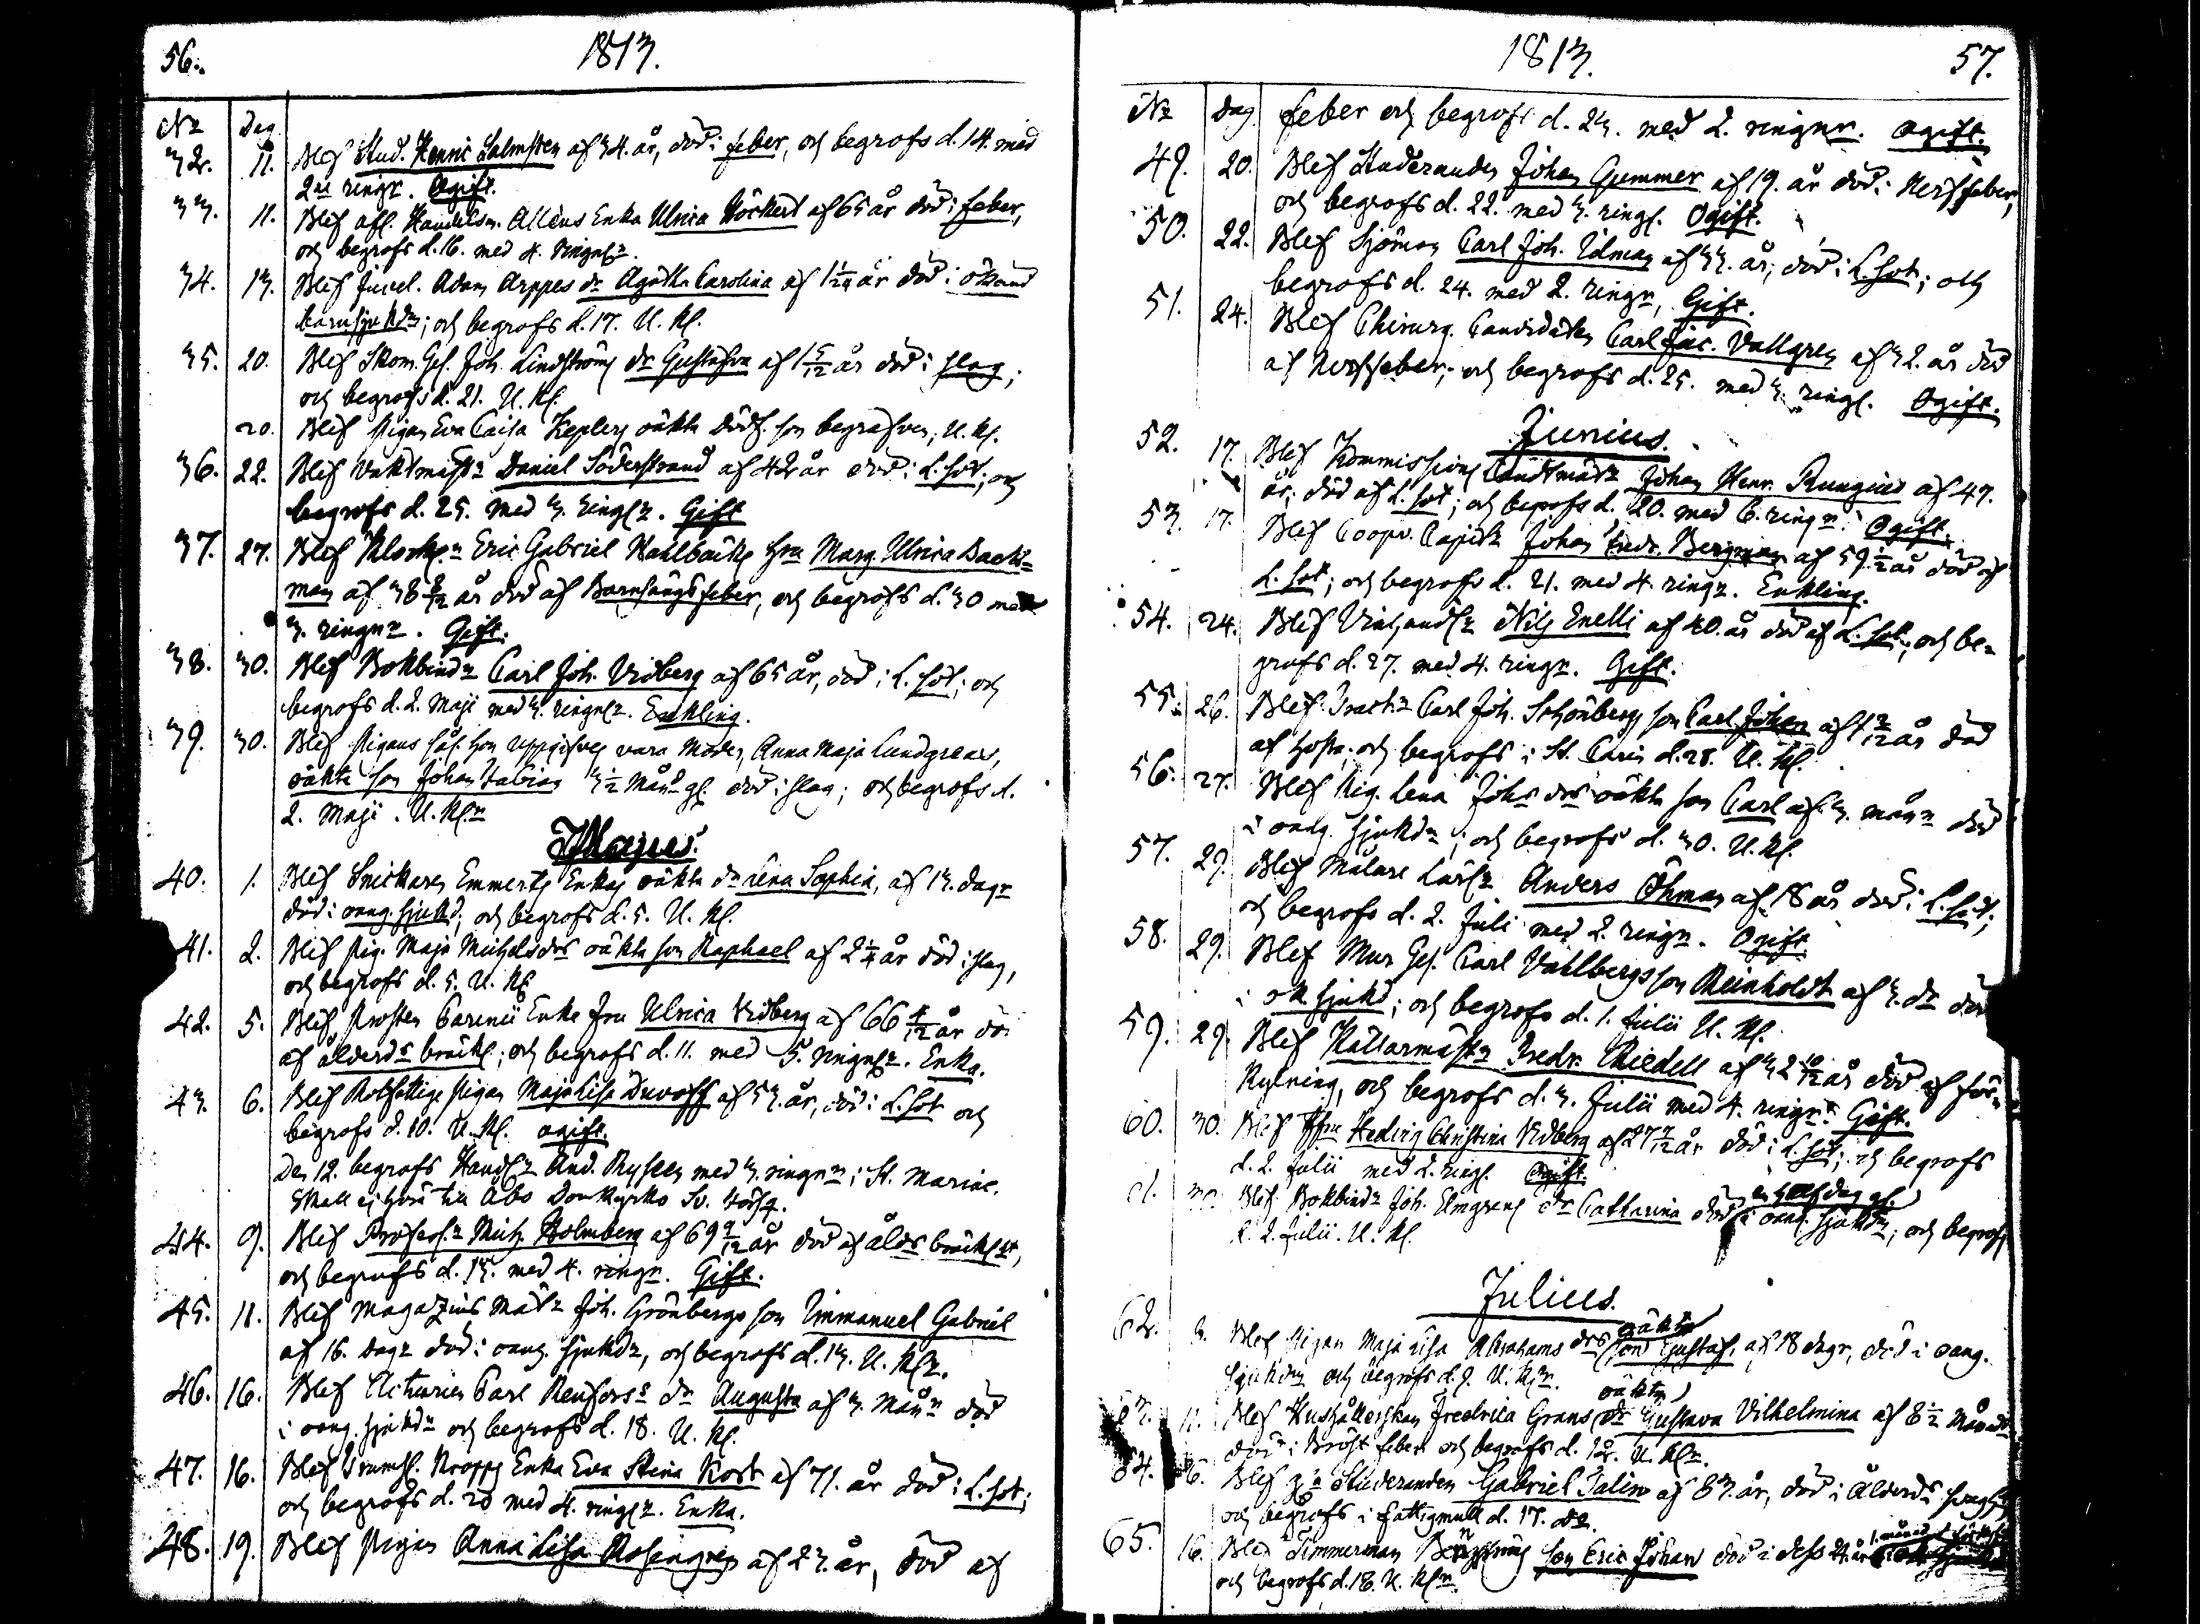 56. 1813.
No Dag.
32. 11. Blef Stud. Henric Salmsten af 34. år, död i feber, och begrofs d. 14. med
2ne ringr. Ogift.
33. 11. Blef afl. Handelsm. Alléns Enka Ulrica Höckert af 65 år död i feber,
och begrofs d. 16. med 4. ringnr.
34. 13. Blef Juvel. Adam Arppes dr Agatha Carolina af 1 år död i okänd
barnsjukdm; och begrofs d. 17. U. Kl.
35. 20. Blef Skom. Ges. Joh. Lindströms dr Gustafva af 1 5/12 år död i slag;
och begrofs d. 21. U. Kl.
20. Blef Pigan Eva Caisa Keplers oäkta dödf. son begrafven, U. Kl.
36. 22. Blef Vaktmästr Daniel Söderstrand af 42 år död i L. sot; och
begrofs d. 25. med 3. ringr. Gift
37. 27. Blef Klock.n Eric Gabriel Vahlbäcks Hru Marg. Ulrica Back-
man af 38 8/12 år död af Barnsängsfeber, och begrofs d. 30 med
3. ringnr. Gift.
38. 30. Blef Bokbindr Carl Joh. Vidberg af 65 år, död i L. sot; och
begrofs d. 2. Maji med 3. ringnr. Enkling.
39. 30. Blef Pigans hon uppgifves vara Moder, Anna Maja Lundgrens,
oäkta son Johan Fabian 3 1/2 Mån gl. död i slag; och begrofs d.
2. Maji. U. Kl.
Majus.
40. 1. Blef Snickaren Emmertz Enkas oäkta dr Lena Sophia, af 13. dagr
död i oang. sjukd; och begrofs d. 5. U. Kl.
41. 2. Blef Pig. Maja Michelsdrs oäkta son Raphael af 2 1/4 år död i slag,
och begrofs d. 5. U. Kl.
42. 5. Blef Prosten Carenii Enka Fru Ulrica Vidberg af 66 4/12 år död
af ålderds bräckl; och begrofs d. 11. med 5. ringnr. Enka.
43. 6. Blef Rotfattige Pigan Maja Lisa Duvoff af 53. år, död i L. sot och
begrofs d. 10. U. Kl. ogift.
Den 12. begrofs Handlr And. Rysten med 3. ringnr i St. Mariæ.
Skall ej höra till Åbo Domkyrko Sv. Förs.
44. 9. Blef Professr Mich. Holmberg af 69 9/12 år död af ålds bräcklht,
och begrofs d. 13. med 4. ringr. Gift.
45. 11. Blef Magazins Mätr Joh. Grönbergs son Immanuel Gabriel
af 16. dagr död i oang. sjukdr, och begrofs d. 13. U. Kl.
46. 16. Blef Actuarien Carl Renforss dr Augusta af 3. Månr död
i oang. sjukdr och begrofs d. 18. U. Kl.
47. 16. Blef Trumsl. Kropps Enka Eva Stina Kock af 71. år död i L. sot;
och begrofs d. 20 med 4. ringr. Enka.
48. 19. Blef Pigan Anna Lisa Rosengren af 23. år, död af
1813. 57.
No Dag
feber och begrofs d. 23. med 2. ringnr. Ogift.
49. 20. Blef Studeranden Johan Gummer af 19. år död i Nerffeber,
och begrofs d. 22. med 3. ringl. Ogift.
50. 22. Blef Sjöman Carl Joh. Idman af 33. år; död i L. sot; och
begrofs d. 24. med 2. ringr, Gift.
51. 24. Blef Chirurg. Candidaten Carl Jac. Vallgren af 32. år död
af Nerffeber; och begrofs d. 25. med 3. ringl. Ogift.
Junius.
52. 17. Blef Kommissions Landtmätr Johan Henr. Rungius af 47.
år; död af L. sot; och begrofs d. 20. med 6. ringr. Ogift.
53. 17. Blef Coopv. Capit. Johan Fredr. Bergman af 59 1/2 år död af
L. sot; och begrofs d. 21. med 4. ringr. Enkling.
54. 24. Blef Vinhandlr Nils Enelli af 40. år död af L. sot; och be-
grofs d. 27. med 4. ringr. Gift.
55. 26. Blef Tractr Carl Joh. Schönbergs son Carl Johan af 1 2/12 år död
af hosta; och begrofs i St. Carin d. 28. U. Kl.
56. 27. Blef Pig. Lena Johs drs oäkta son Carl af 3. månr död
i oang. sjukdr; och begrofs d. 30. U. Kl.
57. 29. Blef Målare Lärlr Anders Öhman af 18 år död i L. sot;
och begrofs d. 2. Juli med 2. ringr. Ogift
58. 29. Blef Mur Ges. Carl Vahlbergs son Reinholdt af 3. dr död
i ok. sjukd; och begrofs d. 1. Julii U. Kl.
59. 29. Blef Källarmästr Fredr. Thiedell af 32 10/12 år död af för-
kylning, och begrofs d. 3. Julii med 4. ringr. Gift.
60. 30. Blef Jfru Hedvig Christina Vidberg af 27 7/12 år död i L. sot; och begrofs
d. 2. Julii med 2. ringl. Ogift.
61. 30. Blef Bokbindr Joh. Elmgrens dr Catharina en half dag gl. död i oang. sjukdm; och begrofs
d. 2. Julii. U. Kl.
Julius.
62. Blef Pigan Maja Lisa Abrahams drs oäkta son Gustaf, af 18 dagr, död i oang.
sjukdm och begrofs d. 9. U. Kl.
63. 11. Blef Hushållerskan Fredrica Grans oäkta dr Gustava Vilhelmina af 8 1/2 Månad
död i Bröst feber och begrofs d. 12. U. Kl.
64. 16. Blef Studeranden Gabriel Talin af 83. år, död i Ålderds
och begrofs i fattigmull d. 17. do.
65. 16. Blef Timmerman son Eric Johan död i dess 4. år
och begrofs d. 18. U. Kl.